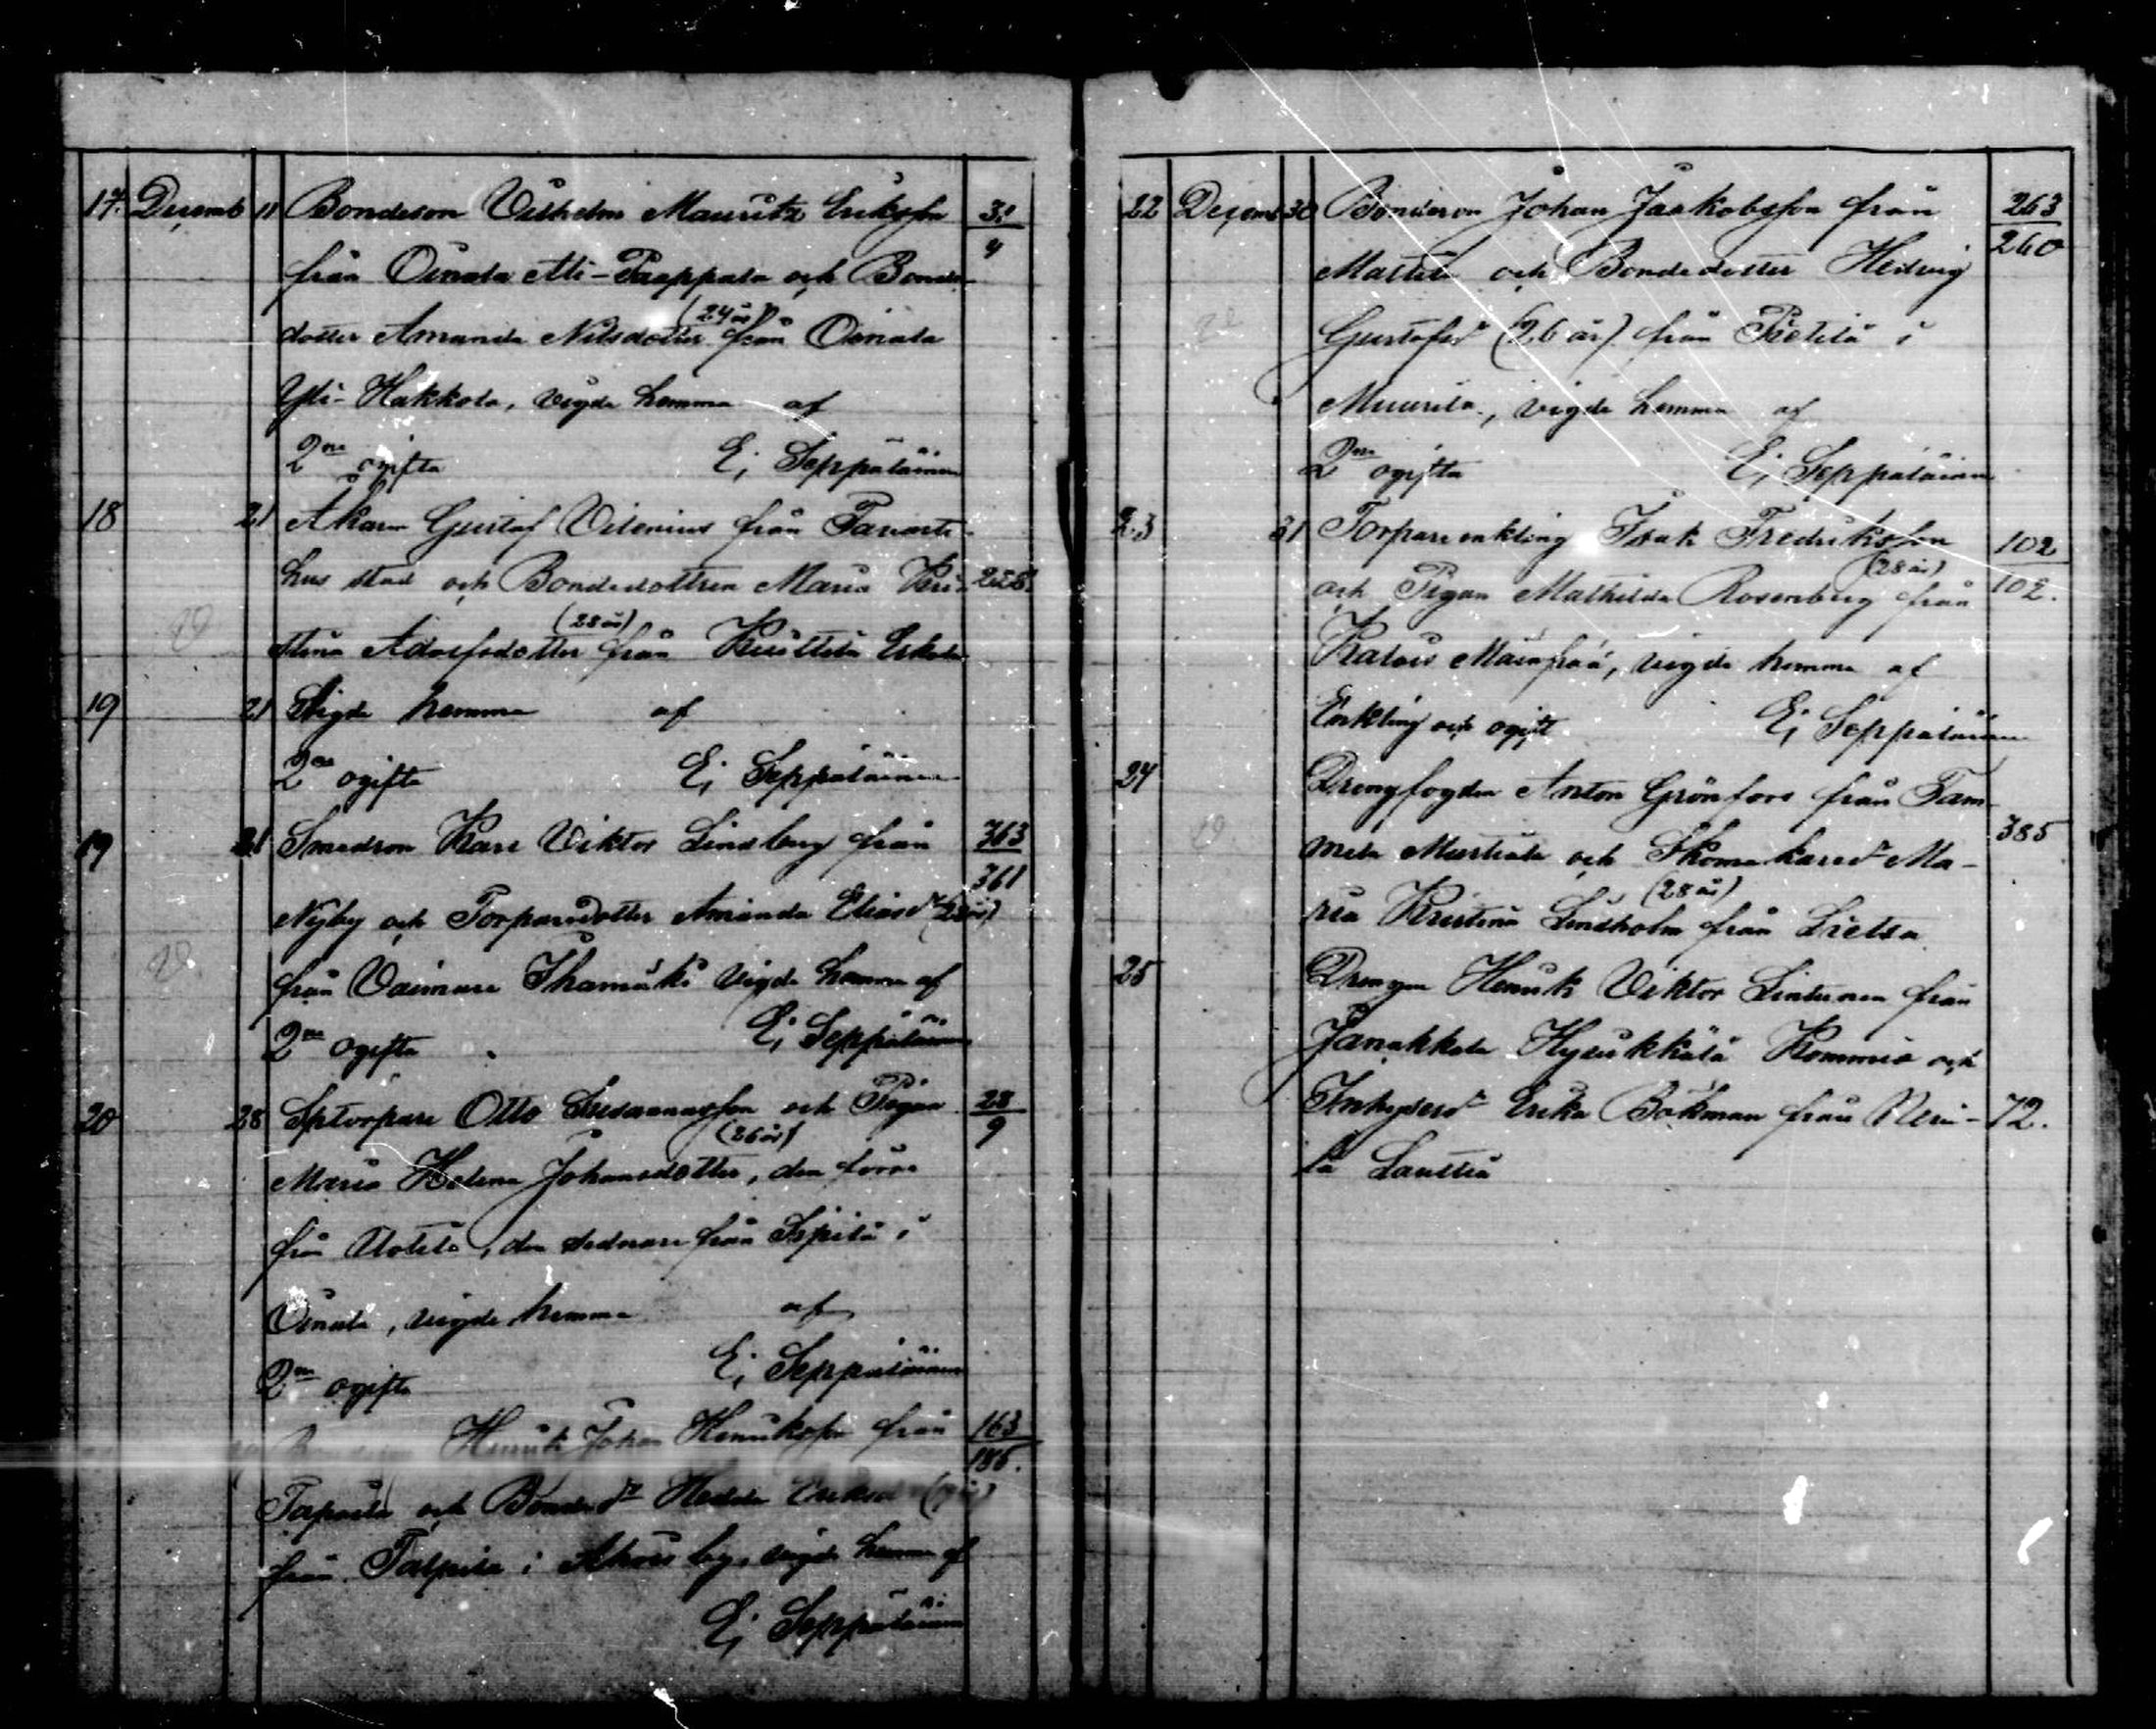 17. Decemb 11 Bondeson Vilhelm Mauritz Eriksson 3.
från Oinala Ali-Paappala och Bonde- 4
dotter Amanda Nilsdotter (24 år) från Oinala
Yli-Hakkola, vigde hemma af
2ne ogifta E; Seppäläinen
18 21 Åkaren Gustaf Vilenius från Tavaste-
hus stad och Bondedottren Maria Kri- 228.
stina Adolfsdotter (28 år) från Kuittila Eskola
19 21 Vigde hemma af
2ne ogifta E; Seppäläinen
19 21 Smedson Karl Viktor Lindberg från 363
361
Nyby och Torparedotter Amanda Eliasdr (28 år)
från Vaimare vigde hemma af
2ne ogifta E; Seppäläinen
20 28 Sptorpare Otto och Pigan 28
Maria Helena Johansdotter (26 år), den förre 9
från den sednare från Sipilä i
Oinala, vigde hemma af
2ne ogifta E; Seppäläinen
Henrik Johan Henriksson från 163
186.
och Bondedr Hedda
från Talpila i by, vigde hemma af
E; Seppäläinen
22 Decemb 30 Bondeson Johan Jaakobsson från 263
Mattila och Bondedotter Hedvig 260
Gustafsdr (26 år) från Pietilä i
Muurila, vigde hemma af
2ne ogifta E; Seppäläinen
23 31 Torpareenkling Isak Fredriksson 102
och Pigan Mathilda Rosenberg (28 år) från 102.
Kalois vigde hemma af
Enkling och ogift E; Seppäläinen
24 Drengfogden Anton Grönfors från Tam-
mela Mustiala och Skomakaredr Ma- 385
ria Kristina Lindholm (28 år) från Lietsa
25 Drengen Henrik Viktor Lintunen från
Janakkala Hyvikkälä och
Inhysesdr Erika Bökman från 72.